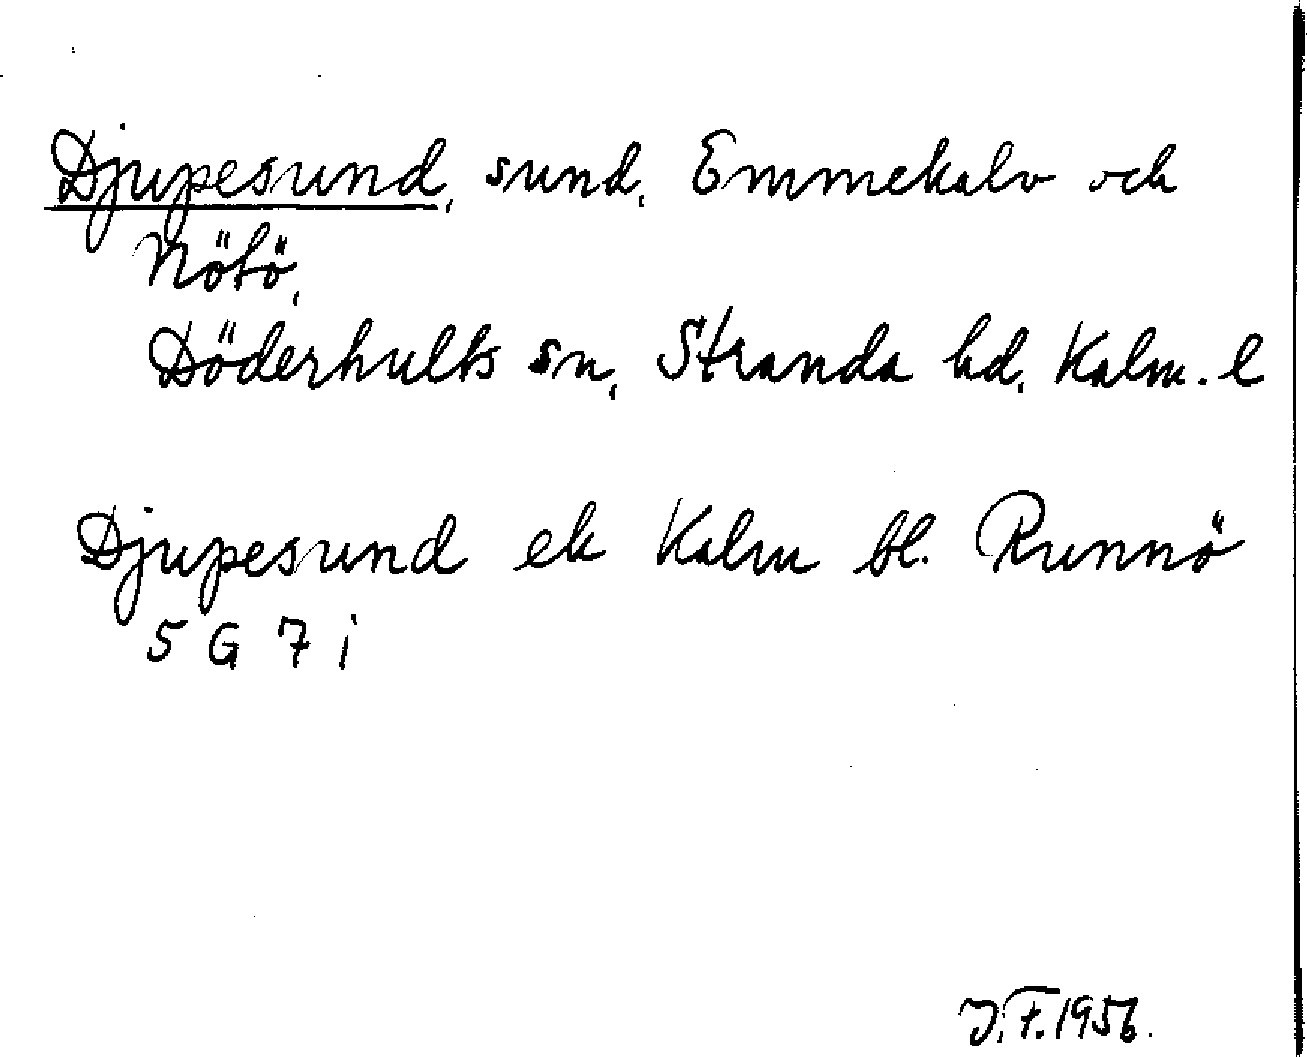 Djupesund, sund, Emmekalv och
Nötö,
Döderhults sn, Stranda hd, Kalm. l
Djupesund ek Kalm bl. Runnö
5 G 7 i
J.F. 1956.